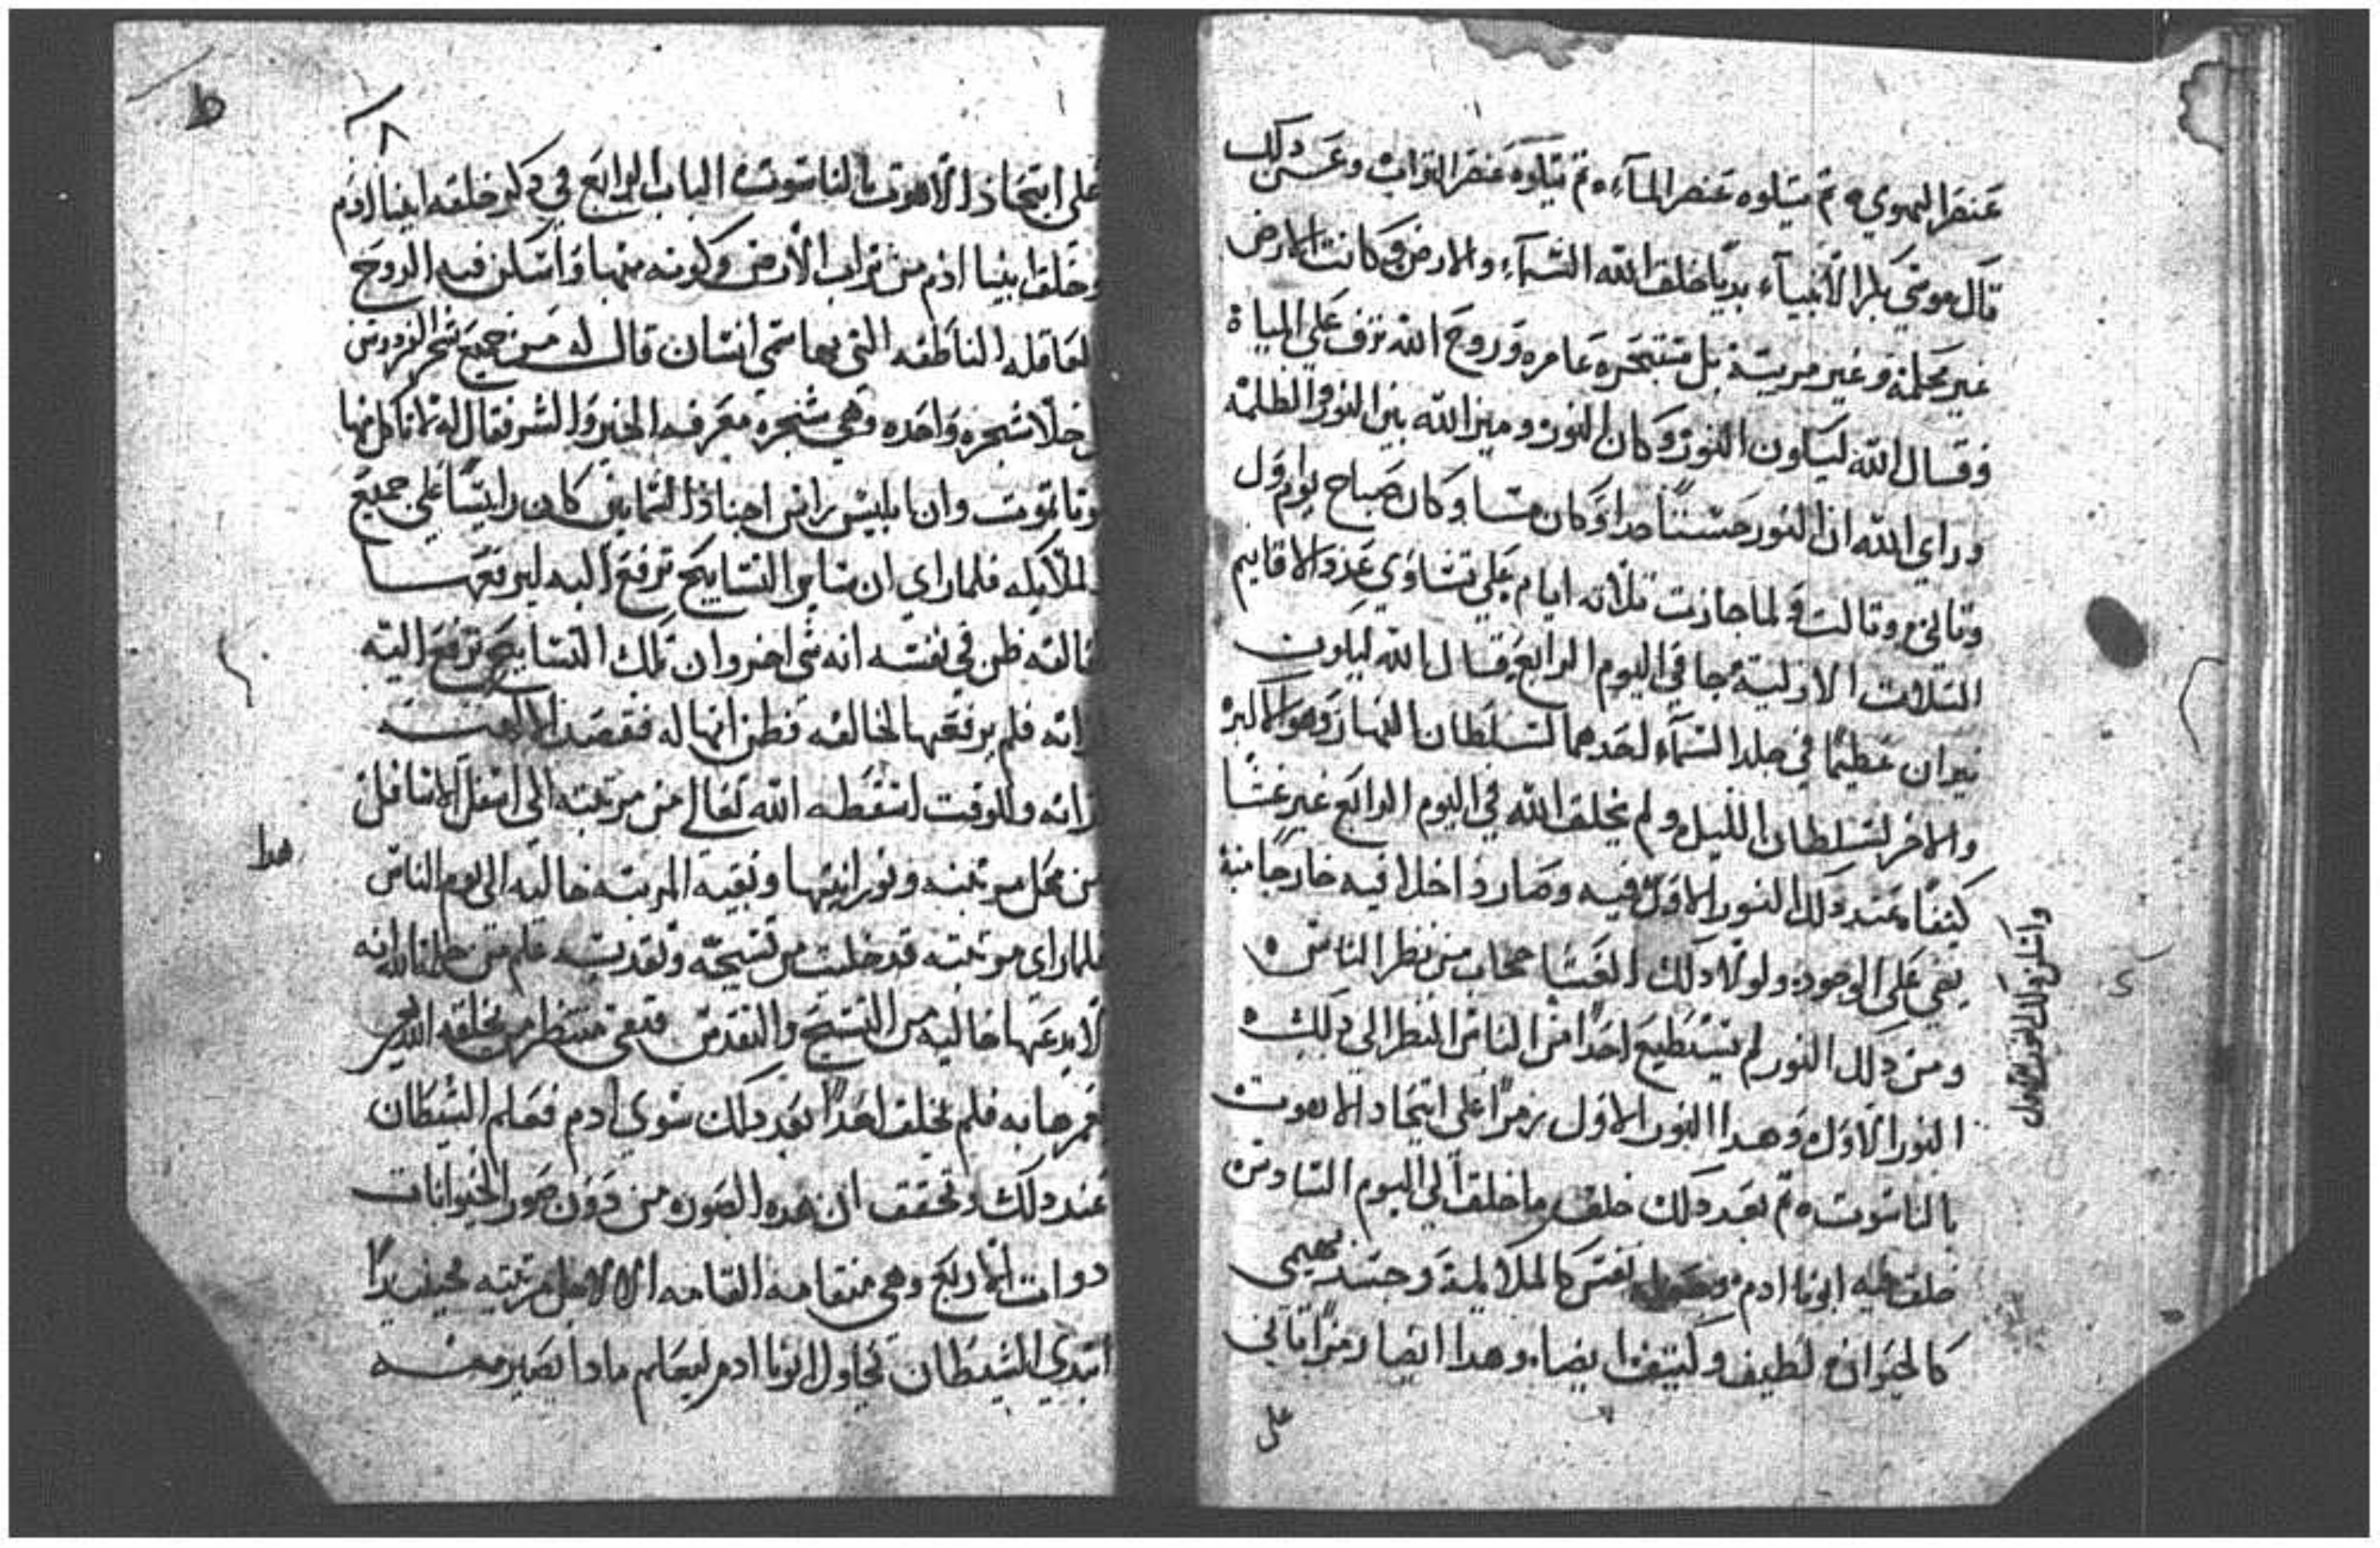 عنصر الهوي ثم يتلوه عنصر المآء ثم يتلوه عنصر التراب وعن دلك
قال موسي الانبيآء بديا خلق الله السمآء والارض وكانت الارض
غير وغير مريية بل عامره وروح الله ترف علي المياة
فقال الله ليكون النور وكان النور وميز الله بين النور والظلمة
وراي الله ان النور حسنا جدا وكان مسا وكان صباح يوم اول
وتاني وتالت ولما جازت تلاته ايام علي تساوي عدد الاقانيم
التلات الازلية جا في اليوم الرابع فقال الله ليكون
نيران عظيما في جلد السمآء احدهما لسلطان النهار وهو الاكبر
والاخر لسلطان الليل ولم يخلق الله في اليوم الرابع غير غشا
كتيفا عند دلك النور الاول فيه وصار داخلا فيه خارجا منه
يضي علي الوجود ولولا دلك الغشا حجاب من نظر الناس
ومن دلك النور لم يستطيع احدا من الناس النظر الي دلك
النور الاول وهدا النور الاول رمزا علي اتحاد الاهوت
بالناسوت ثم بعد دلك خلق ما خلق الي اليوم السادس
خلق فيه ابونا ادم نفس كالملايكة وجسد بهيمي
كالحيوان لطيف وكتيف ايضا وهدا ايضا رمزا تاني
علي
واسكن دلك النور الاول
ط
٨
علي اتحاد الاهوت بالناسوت الباب الرابع في دكر خلقه ابينا ادم
وخلق ابينا ادم من تراب الارض وكونه منها واسكن فيه الروح
العاقله الناطقه التي بها سمي انسان قال له من جميع شجر الفردوس
كل خلا شجره واحده وهي شجره معرفه الخير والشر فقال له لا تاكل منها
وتا تموت وان ابليس راس اجناد السمايين كان رايسا علي جميع
الملايكه فلما راي ان ساير التسابيح ترفع اليه ليرفعها
لخالقه ظن في نفسه انه شي اخر وان تلك التسابيح ترفع اليه
لداته فلم يرفعها لخالقه فظن انها له فقصد
داته وللوقت اسقطه الله تعالي من مرتبته الي اسفل الاسافل
من محل مرتبته ونورانيتها وبقيه المرتبه خاليه الي يوم الناس
هدا
فلما راي مرتبته قد خلت من تسبيحه وتقديسه علم من انه
لا يدعها خاليه من التسبيح والتقديس فبقي منتظر من يخلقه الله
فلم يخلق احدا بعد دلك سوي ادم فعلم الشيطان
عند دلك وتحقق ان هده الصوره من دون صور الحيوانات
دوات الاربع وهي منتقامه القامه
ابتدي الشيطان يحاول ابونا ادم ليعلم مادا يصير منه